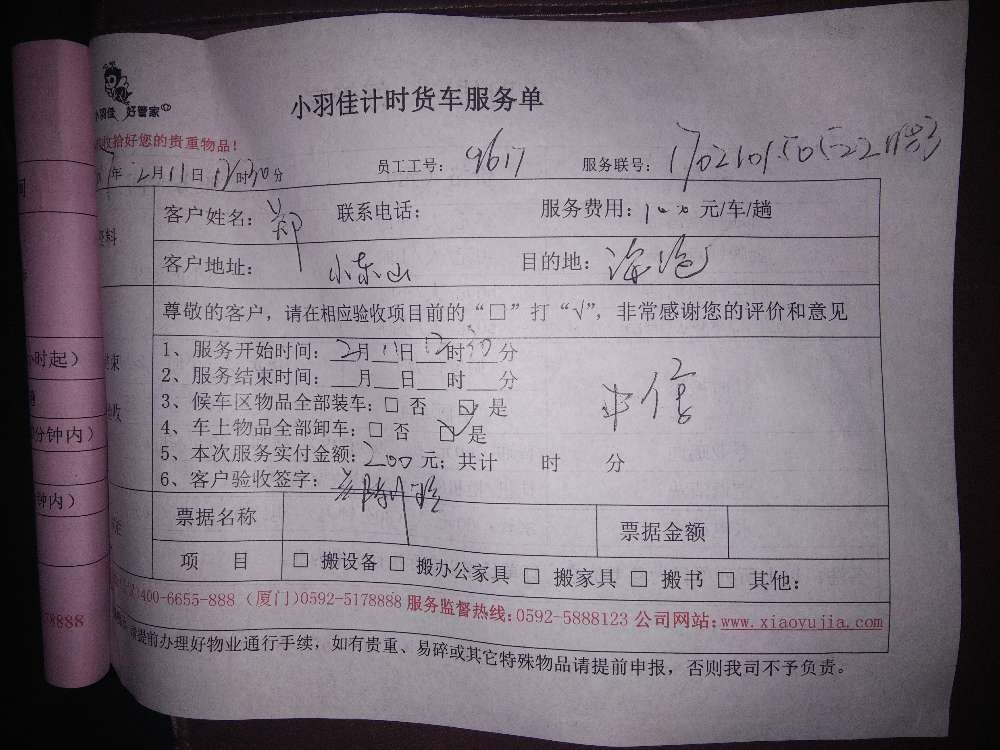 小羽佳 好管家
小羽佳计时货车服务单
收拾好您的贵重物品!
年2月11日 时30分 员工工号: 9617 服务联号:
资料 客户姓名: 郑 联系电话: 服务费用: 100 元/车/趟
客户地址: 小东山 目的地: 海沧
尊敬的客户，请在相应验收项目前的“□”打“√”，非常感谢您的评价和意见
1、服务开始时间: 2月11日 时 分
2、服务结束时间: 月 日 时 分
3、候车区物品全部装车: □ 否 ☑ 是
4、车上物品全部卸车: □ 否 ☑ 是
5、本次服务实付金额: 200 元; 共计 时 分
6、客户验收签字:
票据名称 票据金额
项 目 □ 搬设备 □ 搬办公家具 □ 搬家具 □ 搬书 □ 其他:
400-6655-888 (厦门)0592-5178888 服务监督热线:0592-5888123 公司网站:www.xiaoyujia.com
请提前办理好物业通行手续，如有贵重、易碎或其它特殊物品请提前申报，否则我司不予负责。
小时起)
分钟内)
钟内)
78888